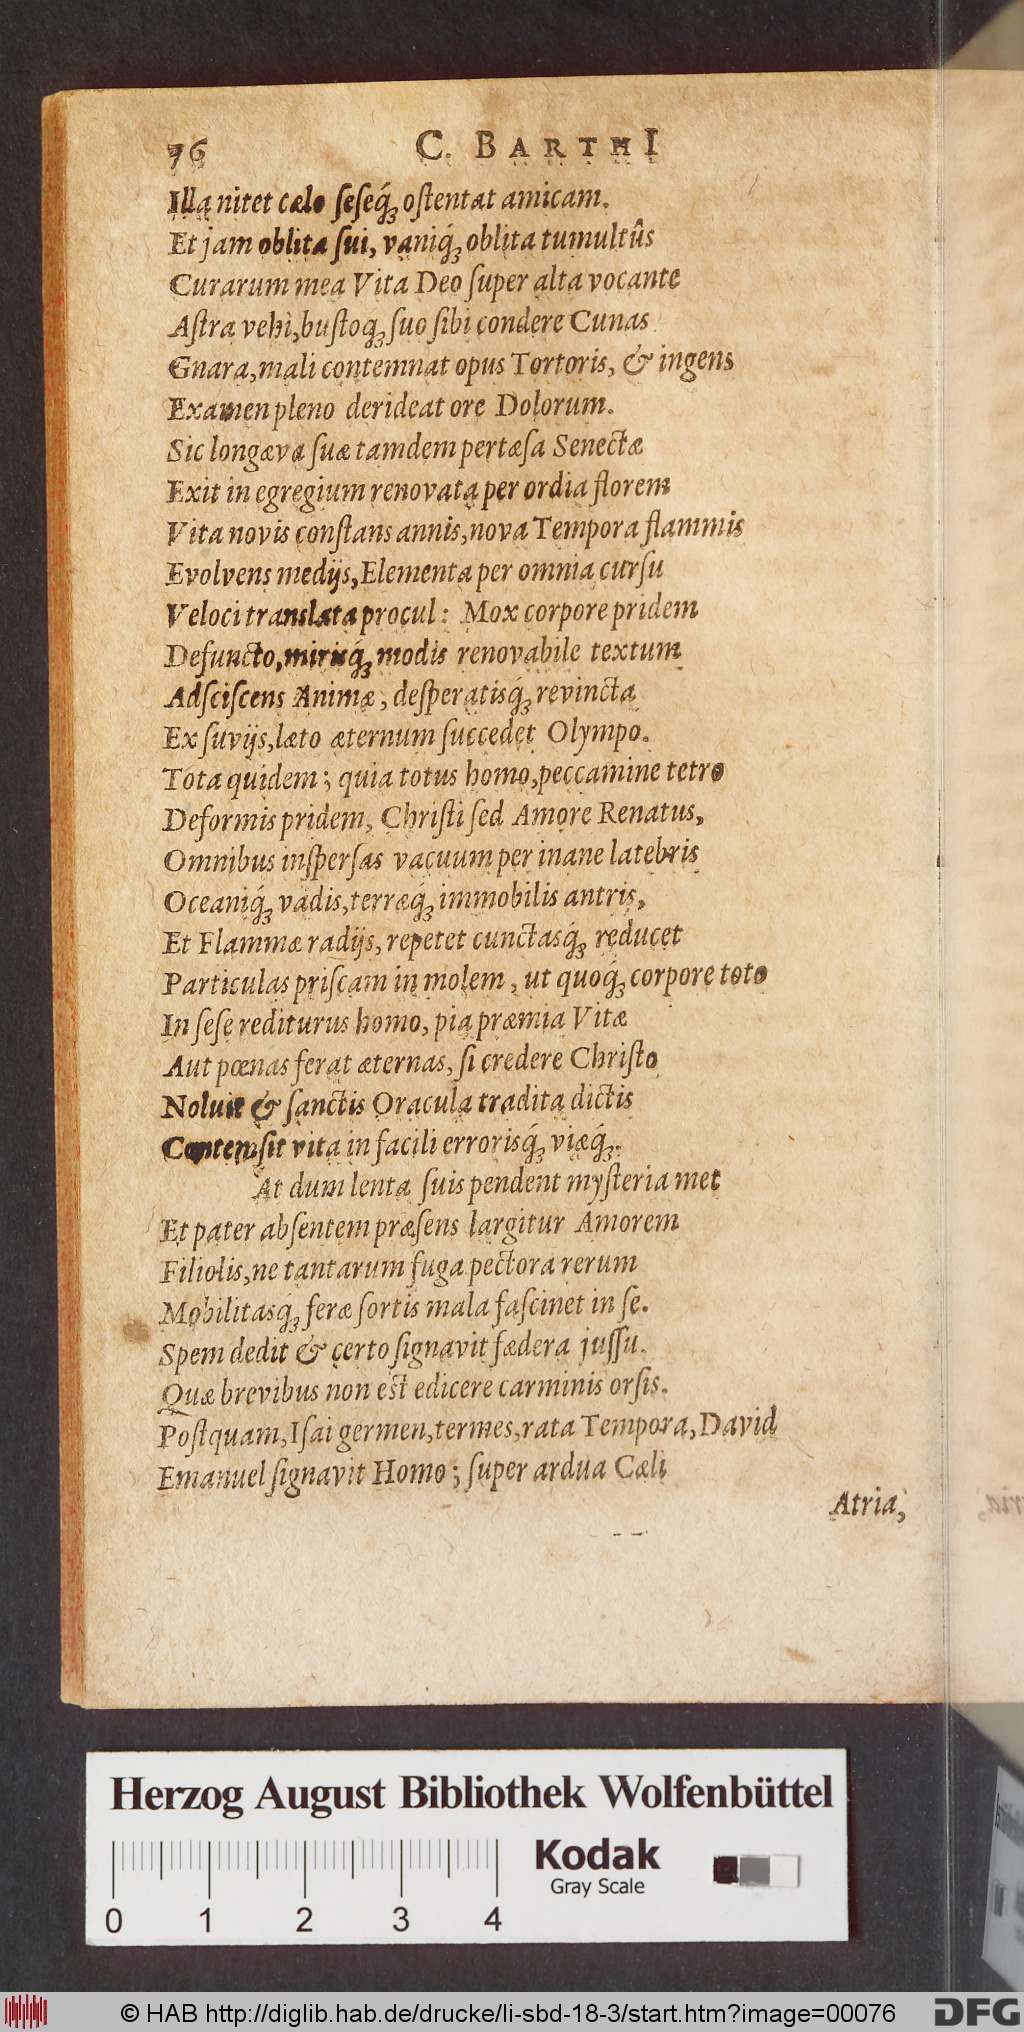 76 C. BARTHI
Illa nitet cælo seseq́; ostentat amicam.
Et jam oblita sui, vaniq́; oblita tumultûs
Curarum mea Vita Deo super alta vocante
Astra vehi, bustoq; suo sibi condere Cunas
Gnara, mali contemnat opus Tortoris, & ingens
Examen pleno derideat ore Dolorum.
Sic longæva suæ tamdem pertæsa Senectæ
Exit in egregium renovata per ordia florem
Vita novis constans annis, nova Tempora flammis
Evolvens medijs, Elementa per omnia cursu
Veloci translata procul: Mox corpore pridem
Defuncto, mirisq́; modis renovabile textum
Adsciscens Animæ, desperatisq́; revincta
Exsuvijs, læto æternum succedet Olympo.
Tota quidem; quia totus homo, peccamine tetro
Deformis pridem, Christi sed Amore Renatus,
Omnibus inspersas vacuum per inane latebris
Oceaniq́; vadis, terræq́; immobilis antris,
Et Flammæ radijs, repetet cunctasq́; reducet
Particulas priscam in molem, ut quoq́; corpore toto
In sese rediturus homo, pia præmia Vitæ
Aut pœnas ferat æternas, si credere Christo
Noluit & sanctis Oracula tradita dictis
Contemsit vita in facili errorisq́; viæq́;.
At dum lenta suis pendent mysteria met
Et pater absentem præsens largitur Amorem
Filiolis, ne tantarum fuga pectora rerum
Mobilitasq́; feræ sortis mala fascinet in se.
Spem dedit & certo signavit fædera jussu.
Quæ brevibus non est edicere carminis orsis.
Postquam, Isai germen, termes, rata Tempora, David
Emanuel signavit Homo; super ardua Cæli
Atria,
Herzog August Bibliothek Wolfenbüttel
Kodak
Gray Scale
0 1 2 3 4
© HAB http://diglib.hab.de/drucke/li-sbd-18-3/start.htm?image=00076
DFG